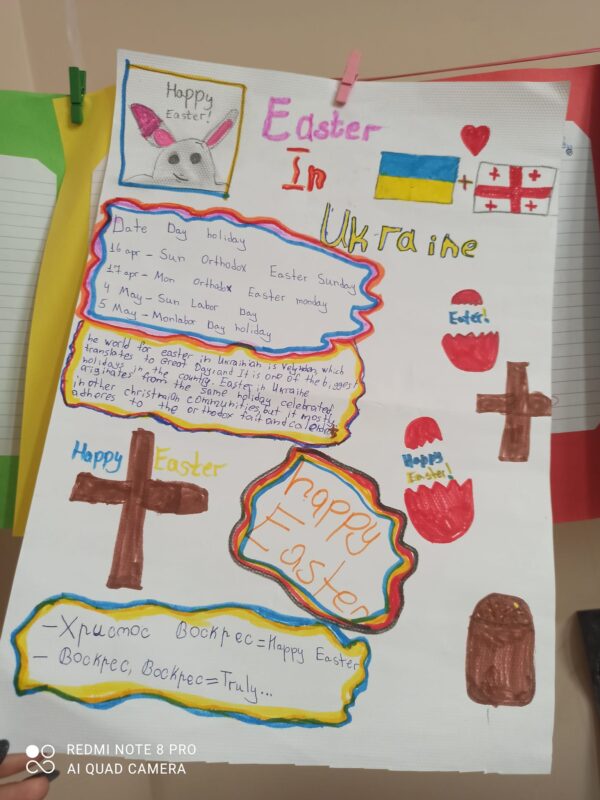 Happy
Easter!
Easter
In
Ukraine
Date Day holiday
16 apr - Sun Orthodox Easter Sunday
17 apr - Mon Orthodox Easter monday
4 May - Sun Labor Day
5 May - Monlabor Day holiday
he world for easter in Ukrainian is which
translates to Great Day; and It is one of the biggest
holidays in the country. Easter in Ukraine
originates from the same holiday celebrated
in other communities, but it mostly
adheres to the orthodox fait and
Easter!
Happy Easter
Happy
Easter!
happy
Easter
- Христос Воскрес = Happy Easter
- Воскрес, Воскрес = Truly...
REDMI NOTE 8 PRO
AI QUAD CAMERA